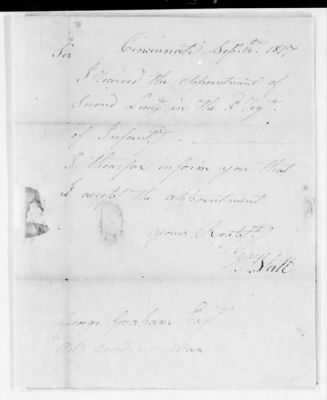 Cincinnati Sept. 12th. 1817
Sir
I received the appointment of
Second Lieut. in the 3d. Regt.
of Infantry
I therefor inform you that
I accept the appointment
Yours Respty.
Platt
George Graham Esqr.
War